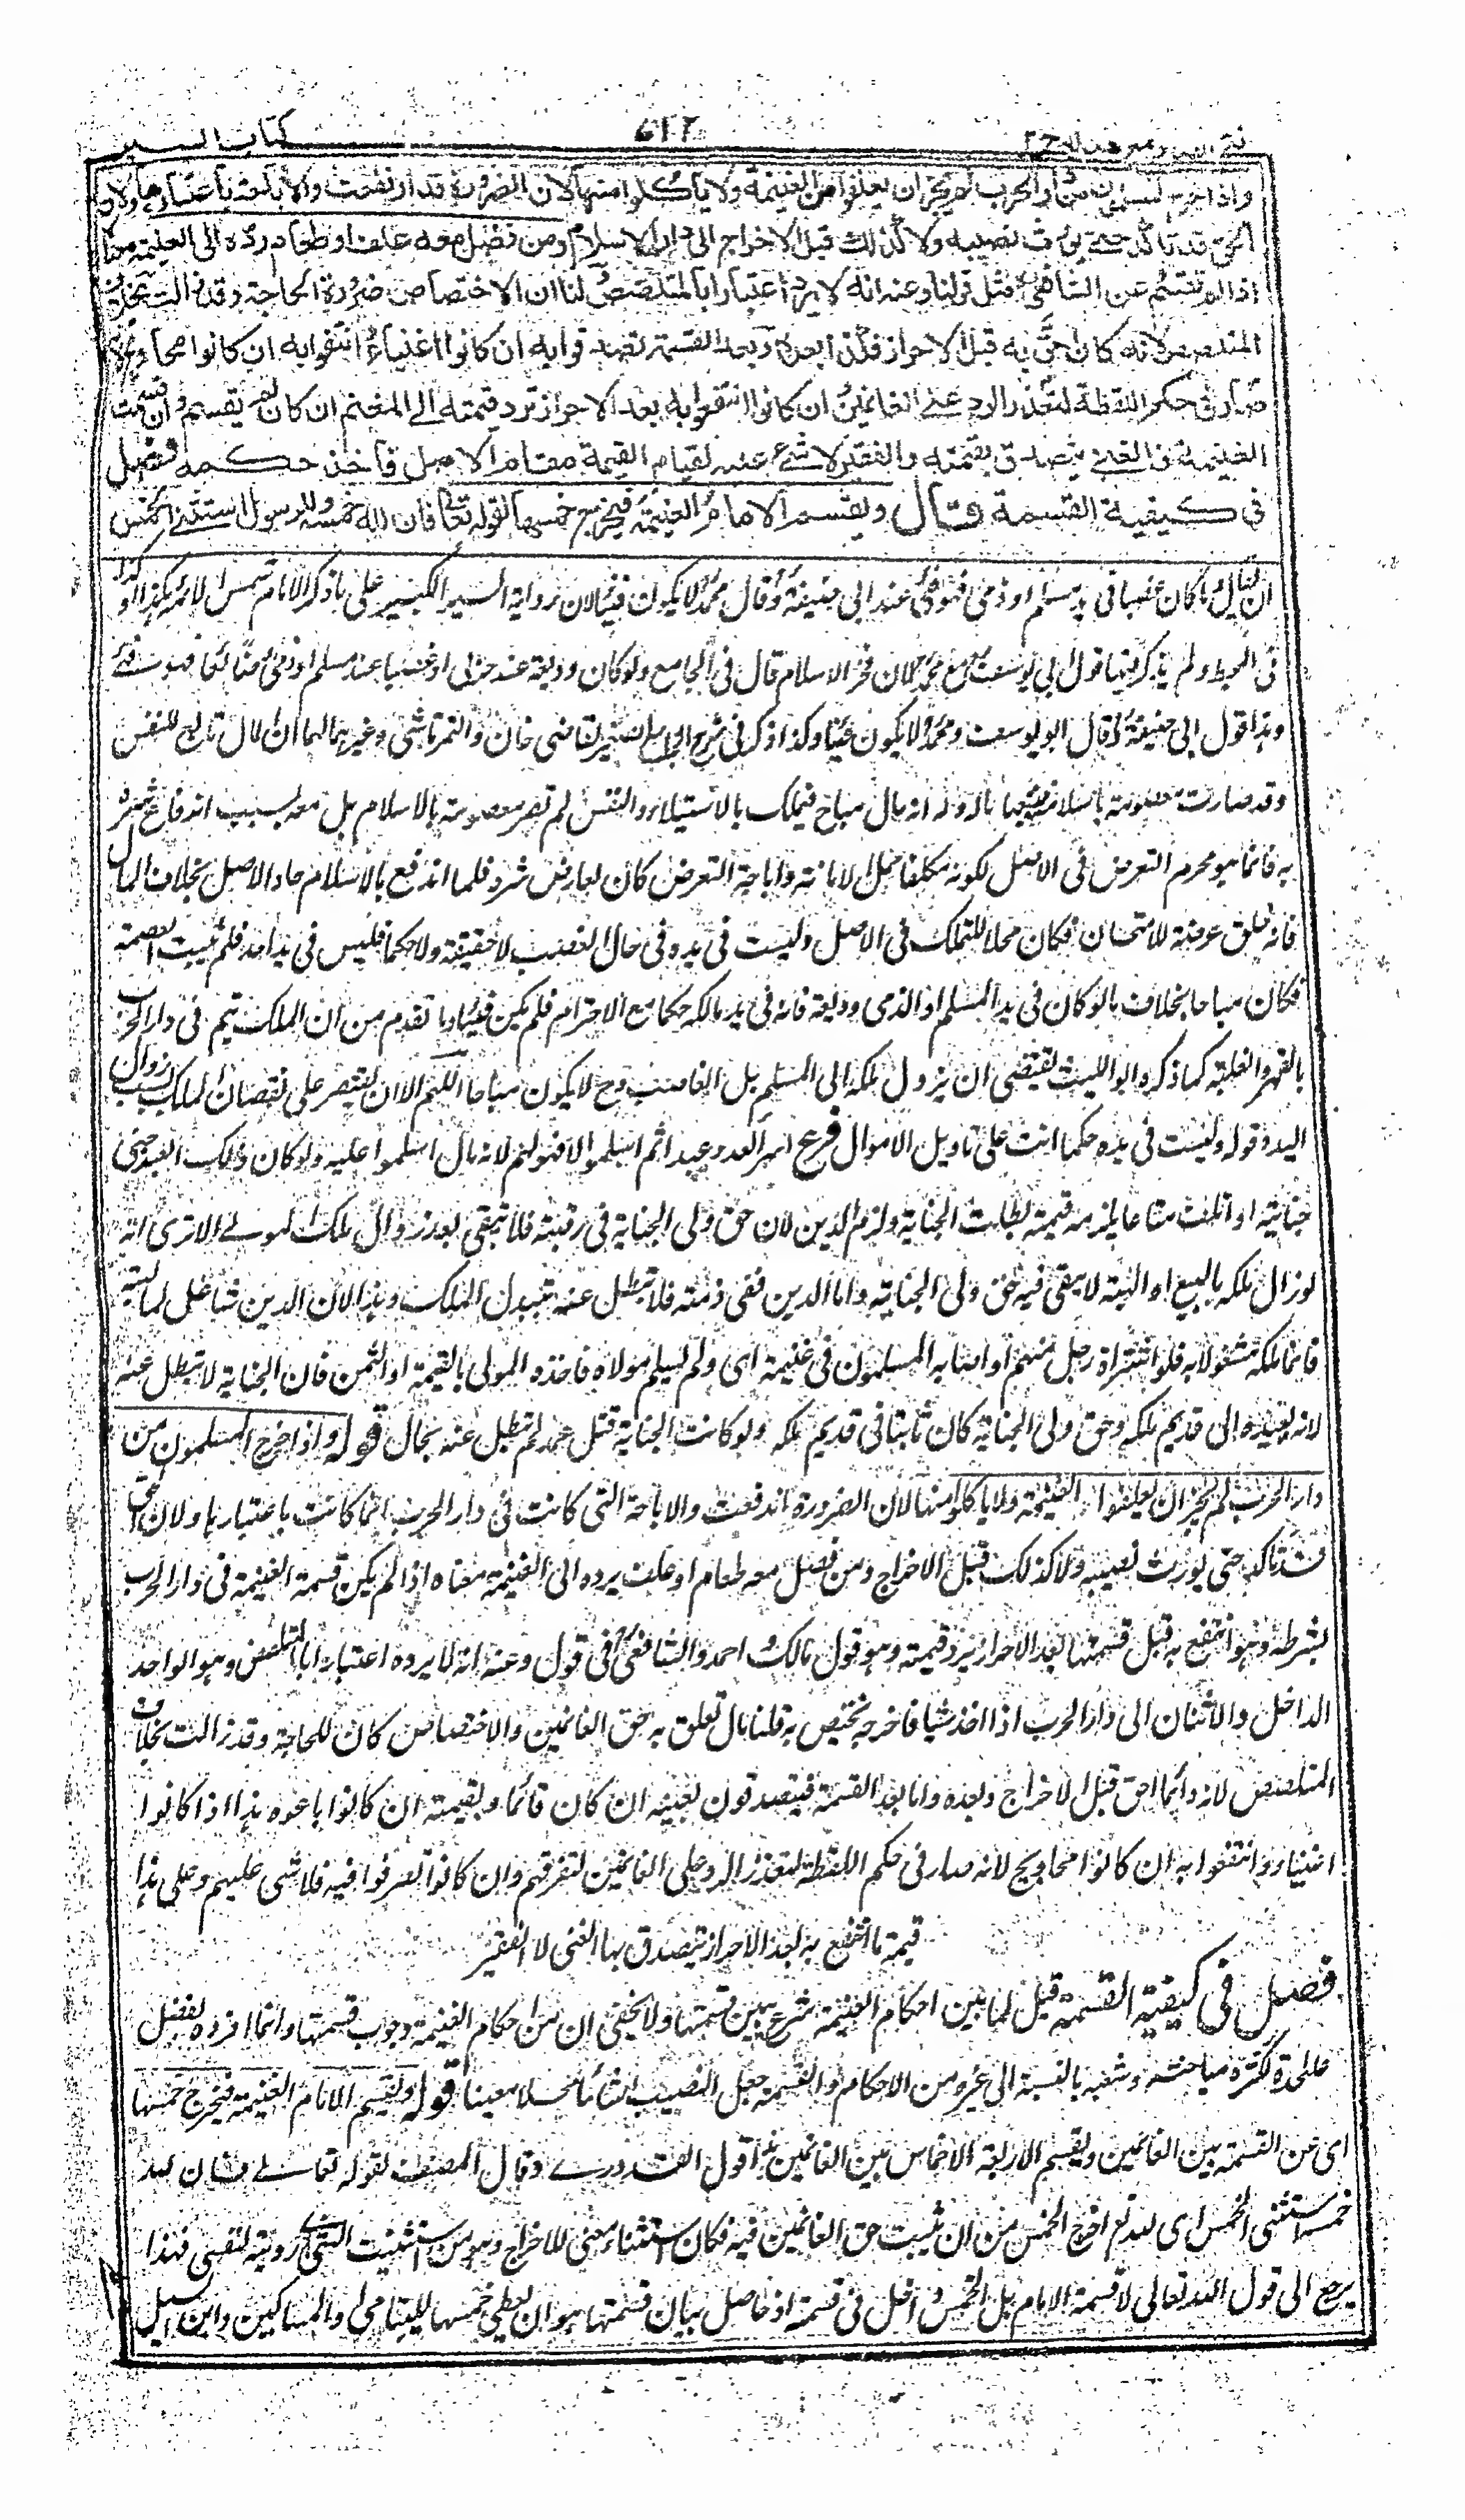 فتح القدير مع هداية ج ٢ ٧٢٢ كتاب السير
واذا خرج المسلمون من دار الحرب لم يجز ان يعلفوا من الغنيمة ولا ياكلوا منها لان الضرورة قد ارتفعت والاباحة باعتبارها ولان
الحق قد تاكد حتى يورث نصيبه ولا كذلك قبل الاخراج الى دار الاسلام ومن فضل معه علف او طعام رده الى الغنيمة معناه
اذا لم تقسم عن الشافعي مثل قولنا وعنه انه لا يرد اعتبارا بالمتلصص ولنا ان الاختصاص ضرورة الحاجة وقد زالت بخلاف
المتلصص لانه كان احق به قبل الاحراز فكذا بعده وبعد القسمة تصدقوا به ان كانوا اغنياء وانتفعوا به ان كانوا محاويج لانه
صار في حكم اللقطة لتعذر الرد على الغانمين وان كانوا انتفعوا به بعد الاحراز ترد قيمته الى المغنم ان كان لم يقسم وان قسمت
الغنيمة فالغني يتصدق بقيمته والفقير لا شيء عليه لقيام القيمة مقام الاصل فاخذ حكمه فصل
في كيفية القسمة قال ويقسم الامام الغنيمة فيخرج خمسها لقوله تعالى فان لله خمسه وللرسول استثنى الخمس
ان المال ما كان غصبا في يد مسلم او ذمي فهو فيء عند ابي حنيفة وقال محمد لا يكون فيئا لان رواية السير الكبير على ما ذكر الامام شمس الائمة هكذا او كذا
في المبسوط ولم يذكر فيها قول ابي يوسف مع محمد لان فخر الاسلام قال في الجامع ولو كان وديعة عند حربي او غصبا عند مسلم او ذمي ضائعا فهو فيء
وهذا قول ابي حنيفة وقال ابو يوسف ومحمد لا يكون فيئا وكذا ذكر في شرح الجامع الصغير قاضي خان والتمرتاشي وغيرهما لهما ان المال تابع للنفس
وقد صارت معصومة باسلامه فيتبعها ماله وله انه مال مباح فيملك بالاستيلاء والنفس لم تصر معصومة بالاسلام بل معه بسبب اندفاع شره
به فانما هو محرم التعرض في الاصل لكونه مكلفا حمل الامانة واباحة التعرض كان لعارض شره فلما اندفع بالاسلام عاد الاصل بخلاف المال
فانه خلق عرضة للامتهان فكان محلا للتملك في الاصل وليست في يده في حال الغصب لا حقيقة ولا حكما فليس في يد احد فلم تثبت العصمة
فكان مباحا بخلاف ما لو كان في يد المسلم او الذمي وديعة فانه في يد مالكه حكما مع الاحترام فلم يكن فيئا وما تقدم من ان الملك يتم في دار الحرب
بالقهر والغلبة كما ذكره ابو الليث يقتضي ان يزول ملكه الى المسلم بل الغاصب وح لا يكون مباحا اللهم الا ان يقتصر على نقصان الملك بسبب زوال
اليد وقوله وليست في يده حكما انث على تاويل الاموال فرع اسر العدو عبدا ثم اسلموا الا فهو لهم لانه مال اسلموا عليه ولو كان ذلك العبد جنى
جناية او اتلف متاعا يلزمه قيمته بطلت الجناية ولزم الدين لان حق ولي الجناية في رقبته فلا تبقى بعد زوال ملك المولى الا ترى انه
لو زال ملكه بالبيع او الهبة لا يبقى فيه حق ولي الجناية واما الدين ففي ذمته فلا تبطل عنه بتبدل الملك وهذا لان الدين شاغل لماليته
فانما ملكه مشغولا به فلو اشتراه رجل منهم او اصابه المسلمون في غنيمة اي ولم يسلم مولاه فاخذه المولى بالقيمة او الثمن فان الجناية لا تبطل عنه
لانه يعيده الى قديم ملكه وحق ولي الجناية كان ثابتا في قديم ملكه ولو كانت الجناية قتل عمد لم تبطل عنه بحال قوله واذا خرج المسلمون من
دار الحرب لم يجز ان يعلفوا الغنيمة ولا ياكلوا منها لان الضرورة اندفعت والاباحة التي كانت في دار الحرب انما كانت باعتبارها ولان الحق
قد تاكد حتى يورث نصيبه ولا كذلك قبل الاخراج ومن فضل معه طعام او علف يرده الى الغنيمة معناه اذا لم يكن قسمة الغنيمة في دار الحرب
بشرطه وما انتفع به قبل قسمتها بعد الاحراز يرد قيمته وهو قول مالك واحمد والشافعي في قول وعنه انه لا يرده اعتبارا بالمتلصص وهو الواحد
الداخل والاثنان الى دار الحرب اذا اخذ شيئا فاخرجه يختص به قلنا مال تعلق به حق الغانمين والاختصاص كان للحاجة وقد زالت بخلاف
المتلصص لانه دائما احق قبل الاخراج وبعده واما بعد القسمة فيتصدقون بعينه ان كان قائما وبقيمته ان كانوا باعوه هذا اذا كانوا
اغنياء وانتفعوا به ان كانوا محاويج لانه صار في حكم اللقطة لتعذر الرد على الغانمين لتفرقهم وان كانوا تصرفوا فيه فلا شيء عليهم وعلى هذا
قيمة ما انتفع به بعد الاحراز يتصدق بها الغني لا الفقير
فصل في كيفية القسمة قيل لما بين احكام الغنيمة شرع يبين قسمتها ولا يخفى ان من احكام الغنيمة وجوب قسمتها وانما افرده بفصل
على حدة لكثرة مباحثه وشعبه بالنسبة الى غيره من الاحكام والقسمة جعل النصيب الشائع محلا معينا قوله ويقسم الامام الغنيمة فيخرج خمسها
اي عن القسمة بين الغانمين ويقسم الاربعة الاخماس بين الغانمين هذا قول القدوري وقال المصنف لقوله تعالى فان لله
خمسه استثنى الخمس اي لله تع اخرج الخمس من ان يثبت حق الغانمين فيه فكان استثناء معنى للاخراج وهو من استثنيت الشيء زويته لنفسي فهذا
يرجع الى قول الله تعالى لا قسمة الامام بل الخمس داخل في قسمة اذ حاصل بيان قسمتها هو ان يعطي خمسها لليتامى والمساكين وابن السبيل